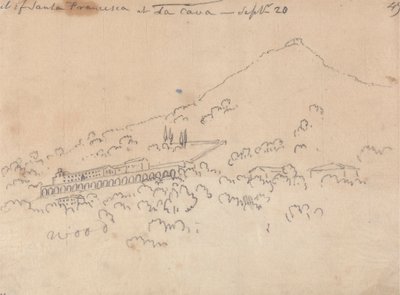 Santa Francesca at La Cava — Septr 20
wood